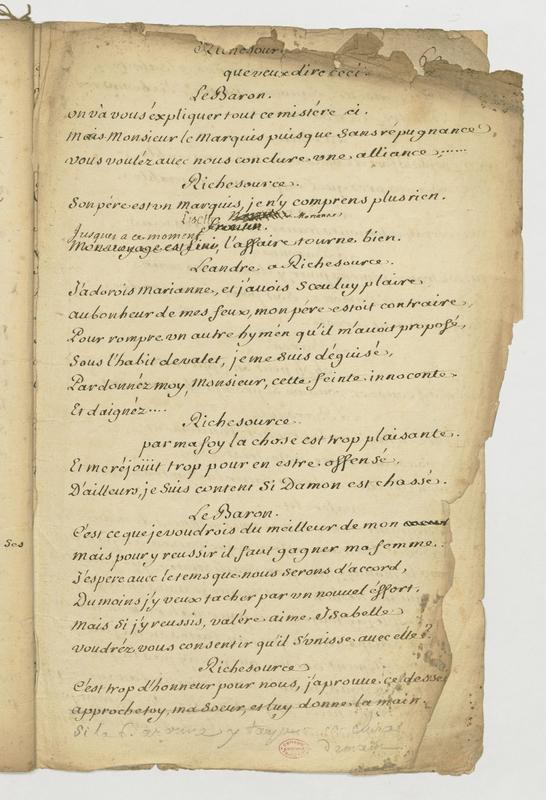 Richesour
que veux dire ceci.
Le Baron.
on và vous éxpliquer tout ce mistére ci.
Mais Monsieur le Marquis puisque Sans répugnance
vous voulèz avec nous conclure vne alliance ;......
Richesource.
Son pére est vn marquis, je n'y comprens plus rien.
Marianne
frontin.
Jusques a ce moment
Mon voyage est fini, l'affaire tourne bien.
Léandre a Richesource.
J'adorois Marianne, et j'avois Sceu luy plaire
au bonheur de mes feux, mon pére estoit contraire,
Pour rompre vn autre hymèn qu'il m'avoit proposé,
Sous l'habit de valet, je me Suis déguisé,
Pardonnéz moy, Monsieur, cette feinte innocente
Et daignéz....
Richesource.
par ma foy la chose est trop plaisante.
Et me réjoüit trop pour en estre offensé,
D'ailleurs, je Suis content Si Damon est chassé.
Le Baron.
C'est ce que je voudrois du meilleur de mon coeur
Mais pour y reussir il faut gagner ma femme.
J'espere avec le tems que nous Serons d'accord,
Du moins j'y veux tacher par vn nouvel éffort.
Mais Si j'y reussis, valére aime Isabelle
voudréz vous consentir qu'il S'vnisse avec elle ?
Richesource
C'est trop d'honneur pour nous, j'aprouve ce dessei
approche toy, ma Soeur, et luy donne la main
Si la
Ses